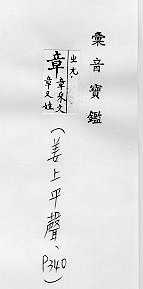 彙音寶鑑
出九
章
章朱文
章又姓
(姜上平聲、P340)